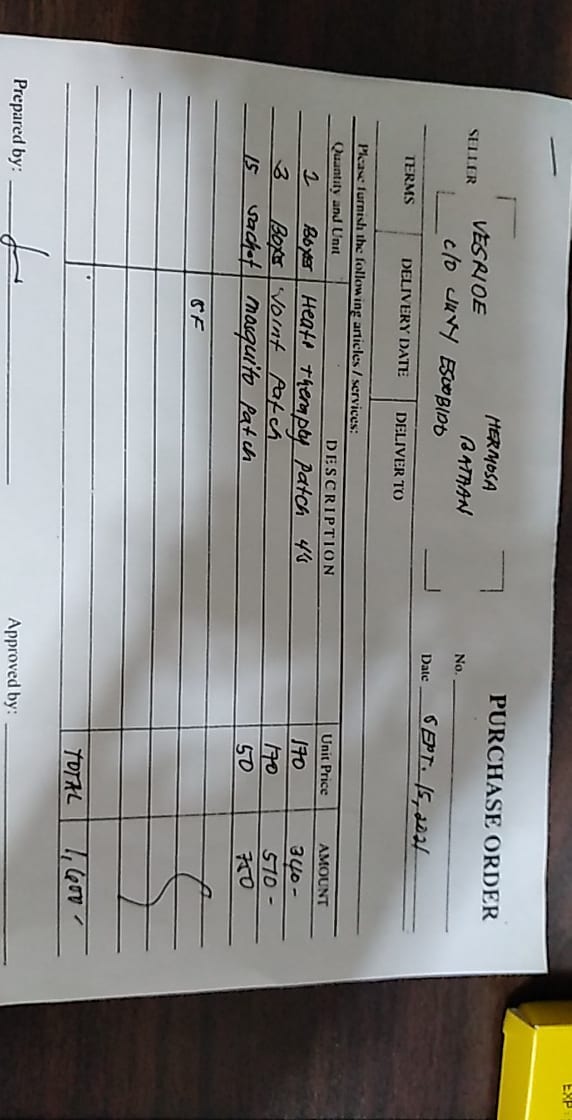 PURCHASE ORDER
HERMOSA
BATAAN
No.
SELLER
VESRIOE
c/o JUVY ESCOBIDO
Date SEPT. 15, 2021
TERMS DELIVERY DATE DELIVER TO
Please furnish the following articles / services:
Quantity and Unit DESCRIPTION Unit Price AMOUNT
2 Boxes Heat Theraphy Patch 4's 170 340-
3 Boxes Joint Patch 170 510-
15 sachet mosquito Patch 50 750
SF
TOTAL 1,600-
Prepared by: Approved by:
EXP